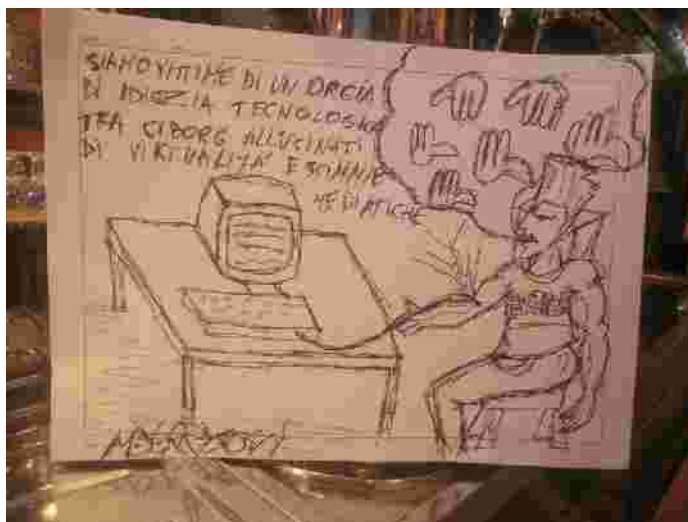 SIAMO VITTIME DI UN ORGIA
DI IDIOZIA TECNOLOGICA
TRA CIBORG ALLUCINATI
DI VIRTUALITÀ E SCIMMIE
MEDIATICHE